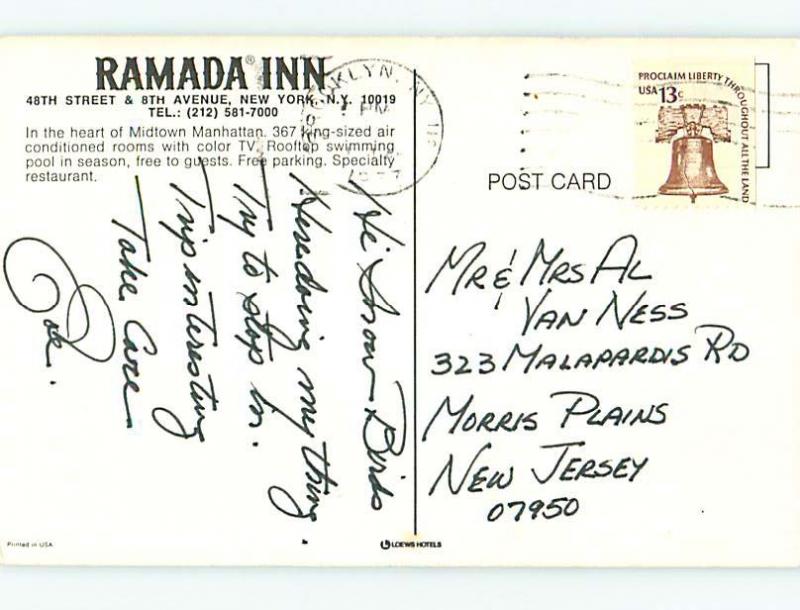 RAMADA® INN
48TH STREET & 8TH AVENUE, NEW YORK, N.Y. 10019
TEL.: (212) 581-7000
In the heart of Midtown Manhattan. 367 king-sized air
conditioned rooms with color TV. Rooftop swimming
pool in season, free to guests. Free parking. Specialty
restaurant.
Hi Snow Birds
Here doing my thing.
Try to stop in.
Trip interesting
Take Care
BROOKLYN, NY 112
PM
1977
PROCLAIM LIBERTY THROUGHOUT ALL THE LAND
USA 13c
POST CARD
MR & MRS AL
VAN NESS
323 MALAPARDIS RD
MORRIS PLAINS
NEW JERSEY
07950
Printed in USA
LOEWS HOTELS